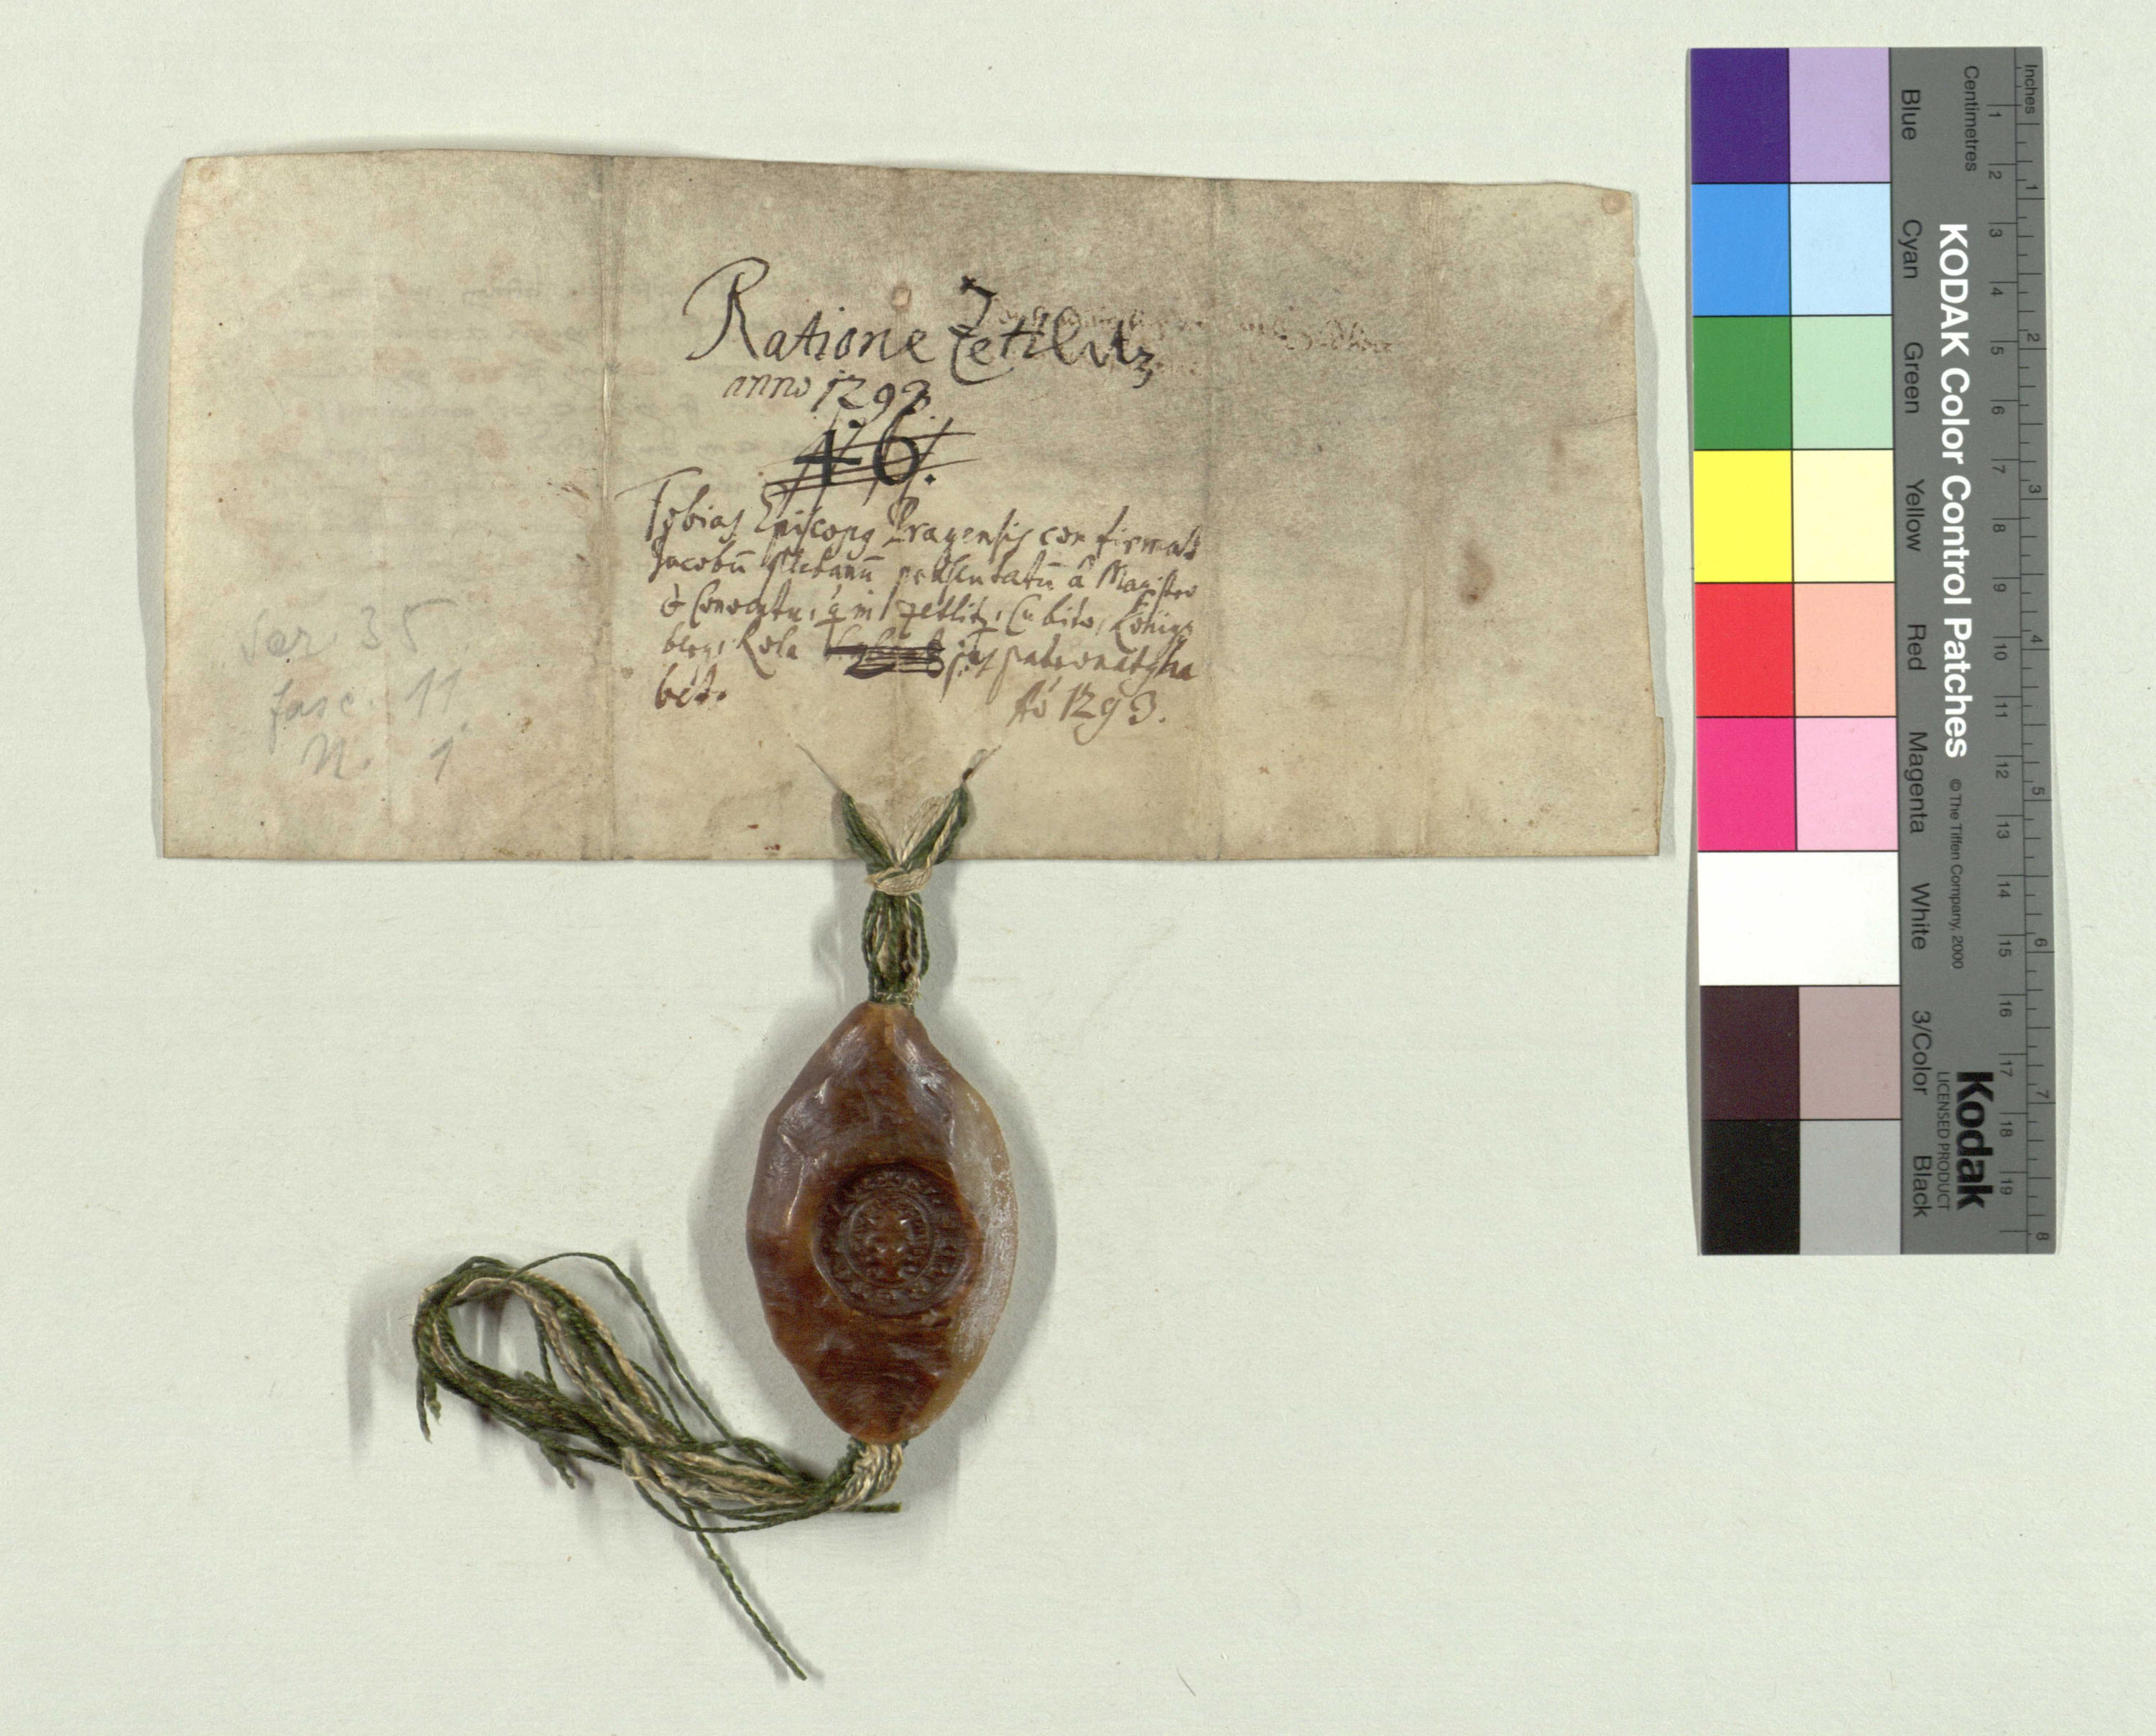 Ratione Zetlitz
anno 1293
46.
Tobias Episcopus Pragensis confirmat
Jacobū Plebanū presentatū â Magistro
& Conventu, q̄ in Zetlitz, Cubito, Königs
berg, Kola jus patronatus ha
bet.
Aō 1293.
Ser. 35
fasc. 11
N. 1
KODAK Color Control Patches © The Tiffen Company, 2000
Kodak
LICENSED PRODUCT
Blue Cyan Green Yellow Red Magenta White 3/Color Black
Centimetres 1 2 3 4 5 6 7 8 9 10 11 12 13 14 15 16 17 18 19
Inches 1 2 3 4 5 6 7 8